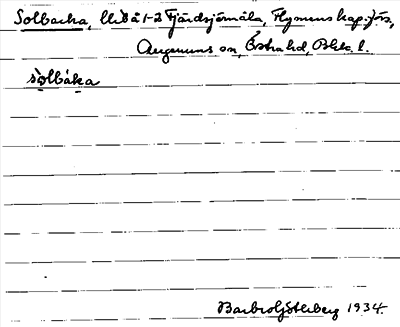 Solbacka, llið å 1-2 Fjärdsjömåla, Flymens kap.förs,
Augerums sn, Östra hd, Blek. l.
sòlbáka
Barbro Söderberg 1934.